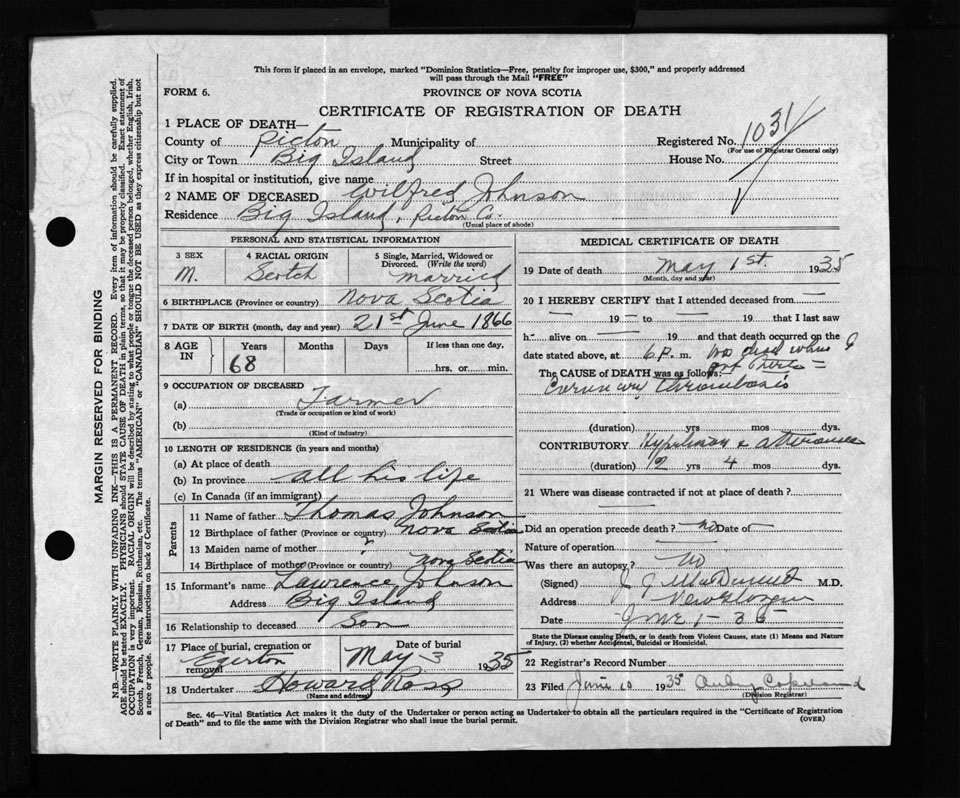 This form if placed in an envelope, marked "Dominion Statistics—Free, penalty for improper use, $300," and properly addressed
will pass through the Mail "FREE"
FORM 6.
PROVINCE OF NOVA SCOTIA
CERTIFICATE OF REGISTRATION OF DEATH
1 PLACE OF DEATH—
County of Pictou Municipality of Registered No. 1031
(For use of Registrar General only)
City or Town Big Island Street House No.
If in hospital or institution, give name
2 NAME OF DECEASED Wilfred Johnson
Residence Big Island, Pictou Co.
(Usual place of abode)
PERSONAL AND STATISTICAL INFORMATION
3 SEX 4 RACIAL ORIGIN 5 Single, Married, Widowed or
Divorced. (Write the word)
M. Scotch Married
6 BIRTHPLACE (Province or country) Nova Scotia
7 DATE OF BIRTH (month, day and year) 21st June 1866
8 AGE IN Years Months Days If less than one day,
68 hrs. or min.
9 OCCUPATION OF DECEASED
(a) Farmer
(Trade or occupation or kind of work)
(b)
(Kind of industry)
10 LENGTH OF RESIDENCE (in years and months)
(a) At place of death
(b) In province all his life
(c) In Canada (if an immigrant)
Parents
11 Name of father Thomas Johnson
12 Birthplace of father (Province or country) Nova Scotia
13 Maiden name of mother ?
14 Birthplace of mother (Province or country) Nova Scotia
15 Informant's name Lawrence Johnson
Address Big Island
16 Relationship to deceased Son
17 Place of burial, cremation or removal Egerton
Date of burial May 3 1935
18 Undertaker Howard Ross
(Name and address)
MEDICAL CERTIFICATE OF DEATH
19 Date of death May 1st. 1935
(Month, day and year)
20 I HEREBY CERTIFY that I attended deceased from —
— 19 — to — 19 that I last saw
h alive on — 19 and that death occurred on the
date stated above, at 6 P. m. Was dead when I
got there
The CAUSE of DEATH was as follows:
Coronary Thrombosis
(duration) yrs mos dys.
CONTRIBUTORY
(duration) 2 yrs 4 mos dys.
21 Where was disease contracted if not at place of death?
Did an operation precede death? no Date of —
Nature of operation —
Was there an autopsy? no
(Signed) M.D.
Address New Glasgow
Date June 1 - 35
State the Disease causing Death, or in death from Violent Causes, state (1) Means and Nature
of Injury, (2) whether Accidental, Suicidal or Homicidal.
22 Registrar's Record Number
23 Filed June 10 1935
(Division Registrar)
Sec. 46—Vital Statistics Act makes it the duty of the Undertaker or person acting as Undertaker to obtain all the particulars required in the "Certificate of Registration
of Death" and to file the same with the Division Registrar who shall issue the burial permit.
(OVER)
MARGIN RESERVED FOR BINDING
N.B.—WRITE PLAINLY WITH UNFADING INK—THIS IS A PERMANENT RECORD. Every item of information should be carefully supplied.
AGE should be stated EXACTLY. PHYSICIANS should STATE CAUSE OF DEATH in plain terms, so that it may be properly classified. Exact statement of
OCCUPATION is very important. RACIAL ORIGIN will be described by stating to what people or tongue the deceased person belonged, whether English, Irish,
Scotch, French, German, Russian, Ruthenian, etc. The terms "AMERICAN" or "CANADIAN" SHOULD NOT BE USED as they express citizenship but not
a race or people. See instructions on back of Certificate.